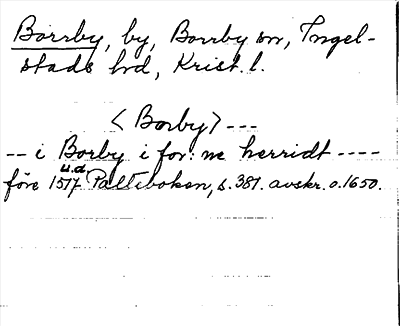 Borrby, by, Borrby sn, Ingel-
stads hd, Krist. l.
<Borby> ---
-- i Borby i for: ne herridt ----
u.d.
före 1517 Palteboken, s. 387. avskr. o. 1650.